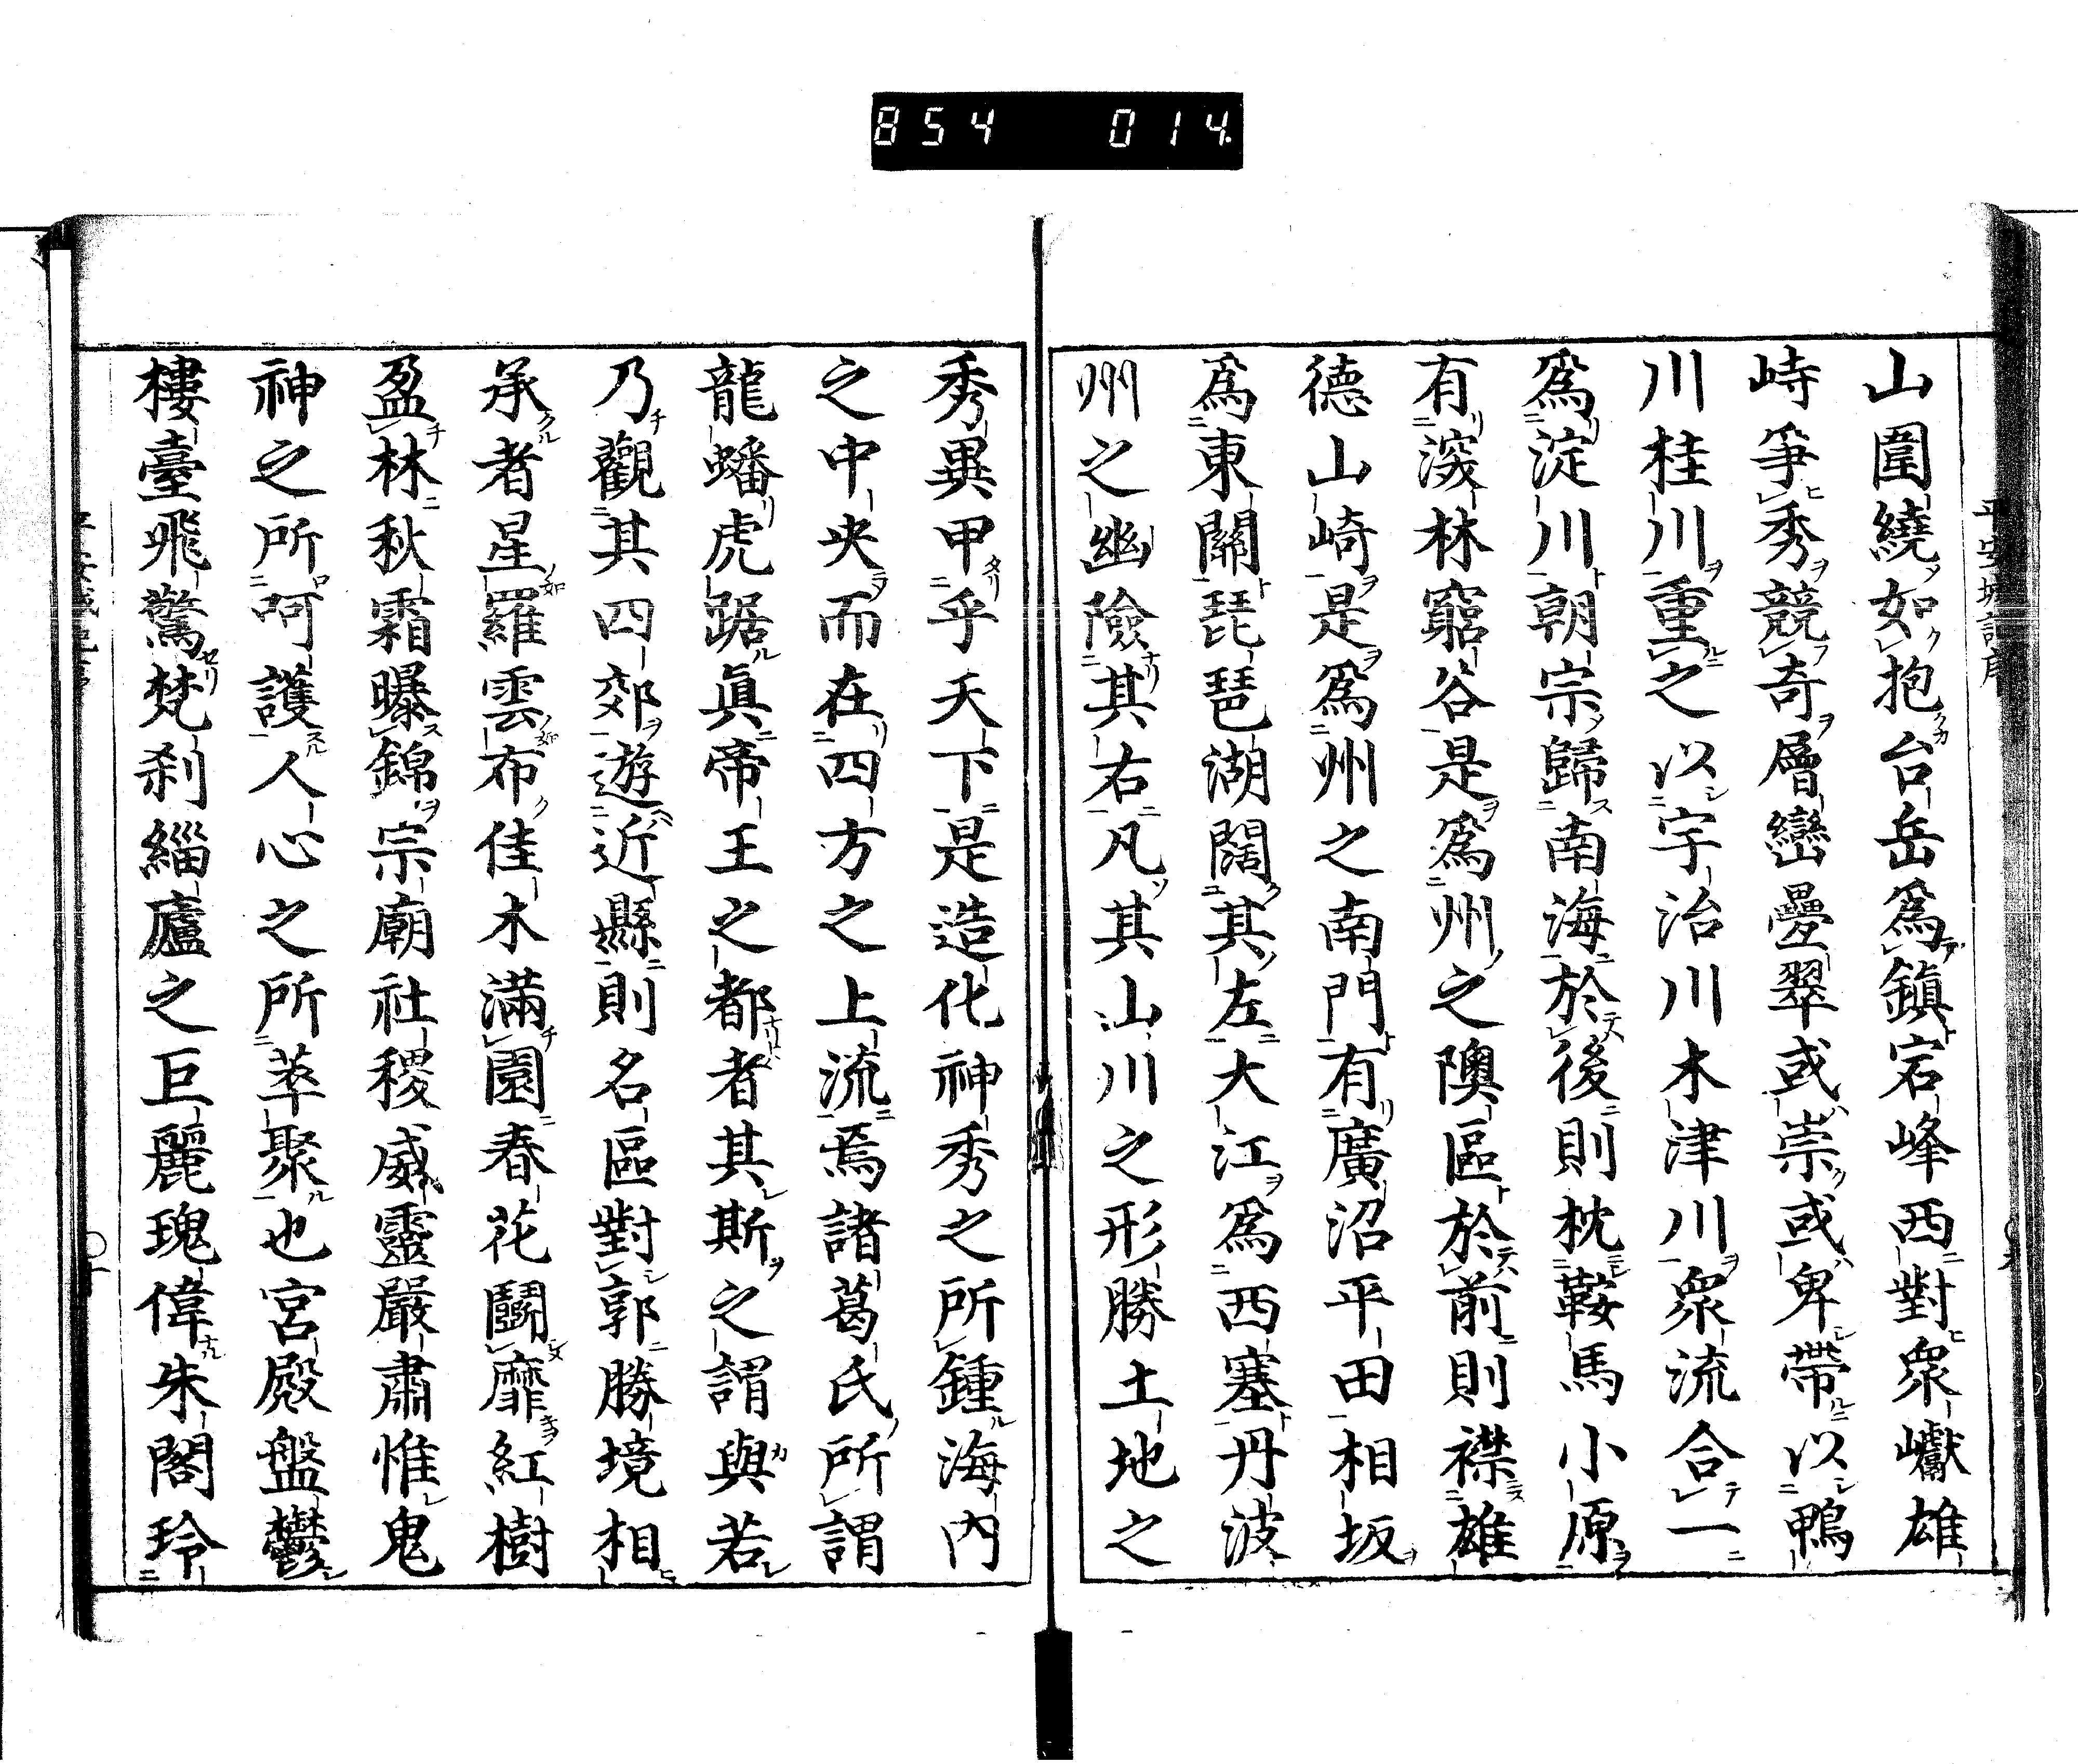 854 014
山圍繞如抱台岳爲鎮宕峰西對衆巘雄
峙爭秀競奇層巒疊翠或崇或卑帶以鴨
川桂川重之以宇治川木津川衆流合一
爲淀川朝宗歸南海於後則枕鞍馬小原
有深林窮谷是爲州之隩區於前則襟雄
徳山崎是爲州之南門有廣沼平田相坂
爲東關琵琶湖濶其左大江爲西塞丹波
州之幽險其右凡其山川之形勝土地之
秀異甲乎天下是造化神秀之所鍾海内
之中央而在四方之上流焉諸葛氏所謂
龍蟠虎踞眞帝王之都者其斯之謂與若
乃觀其四郊遊近縣則名區對郭勝境相
承者星羅雲布佳木滿園春花鬭靡紅樹
盈林秋霜曝錦宗廟社稷威靈嚴肅惟鬼
神之所呵護人心之所萃聚也宮殿盤鬱
樓臺飛驚梵刹緇廬之巨麗瑰偉朱閣玲